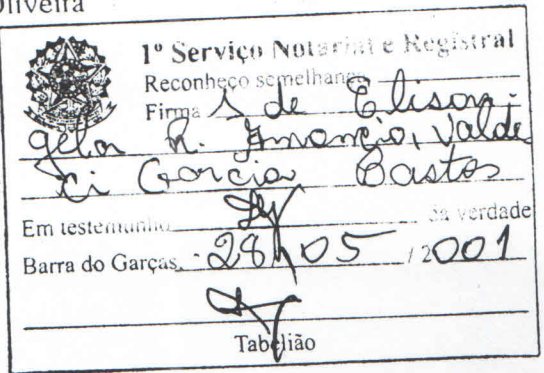 Oliveira
1º Serviço Notarial e Registral
Reconheço semelhança
Firma s de Elison.
gela R. Amancio, Valde
ci Garcia Bastos
Em testemunho da verdade
Barra do Garças, 28 / 05 / 2001
Tabelião